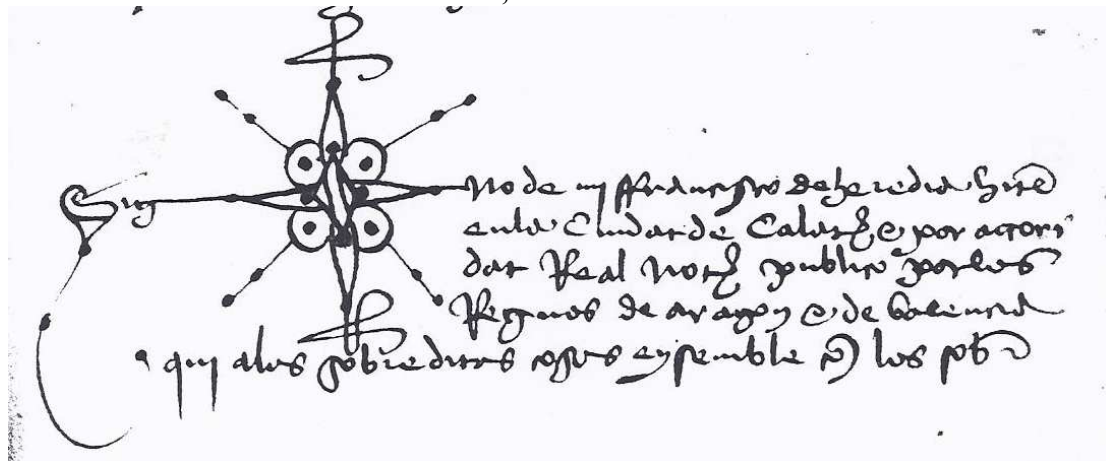 Sig no de mj ffrancisco de heredia hite
en la Ciudat de Calath e por actori
dat Real Noth publico por los
Regnos de aragon e de balencia
qui a las sobreditas cosas ensemble con los sob